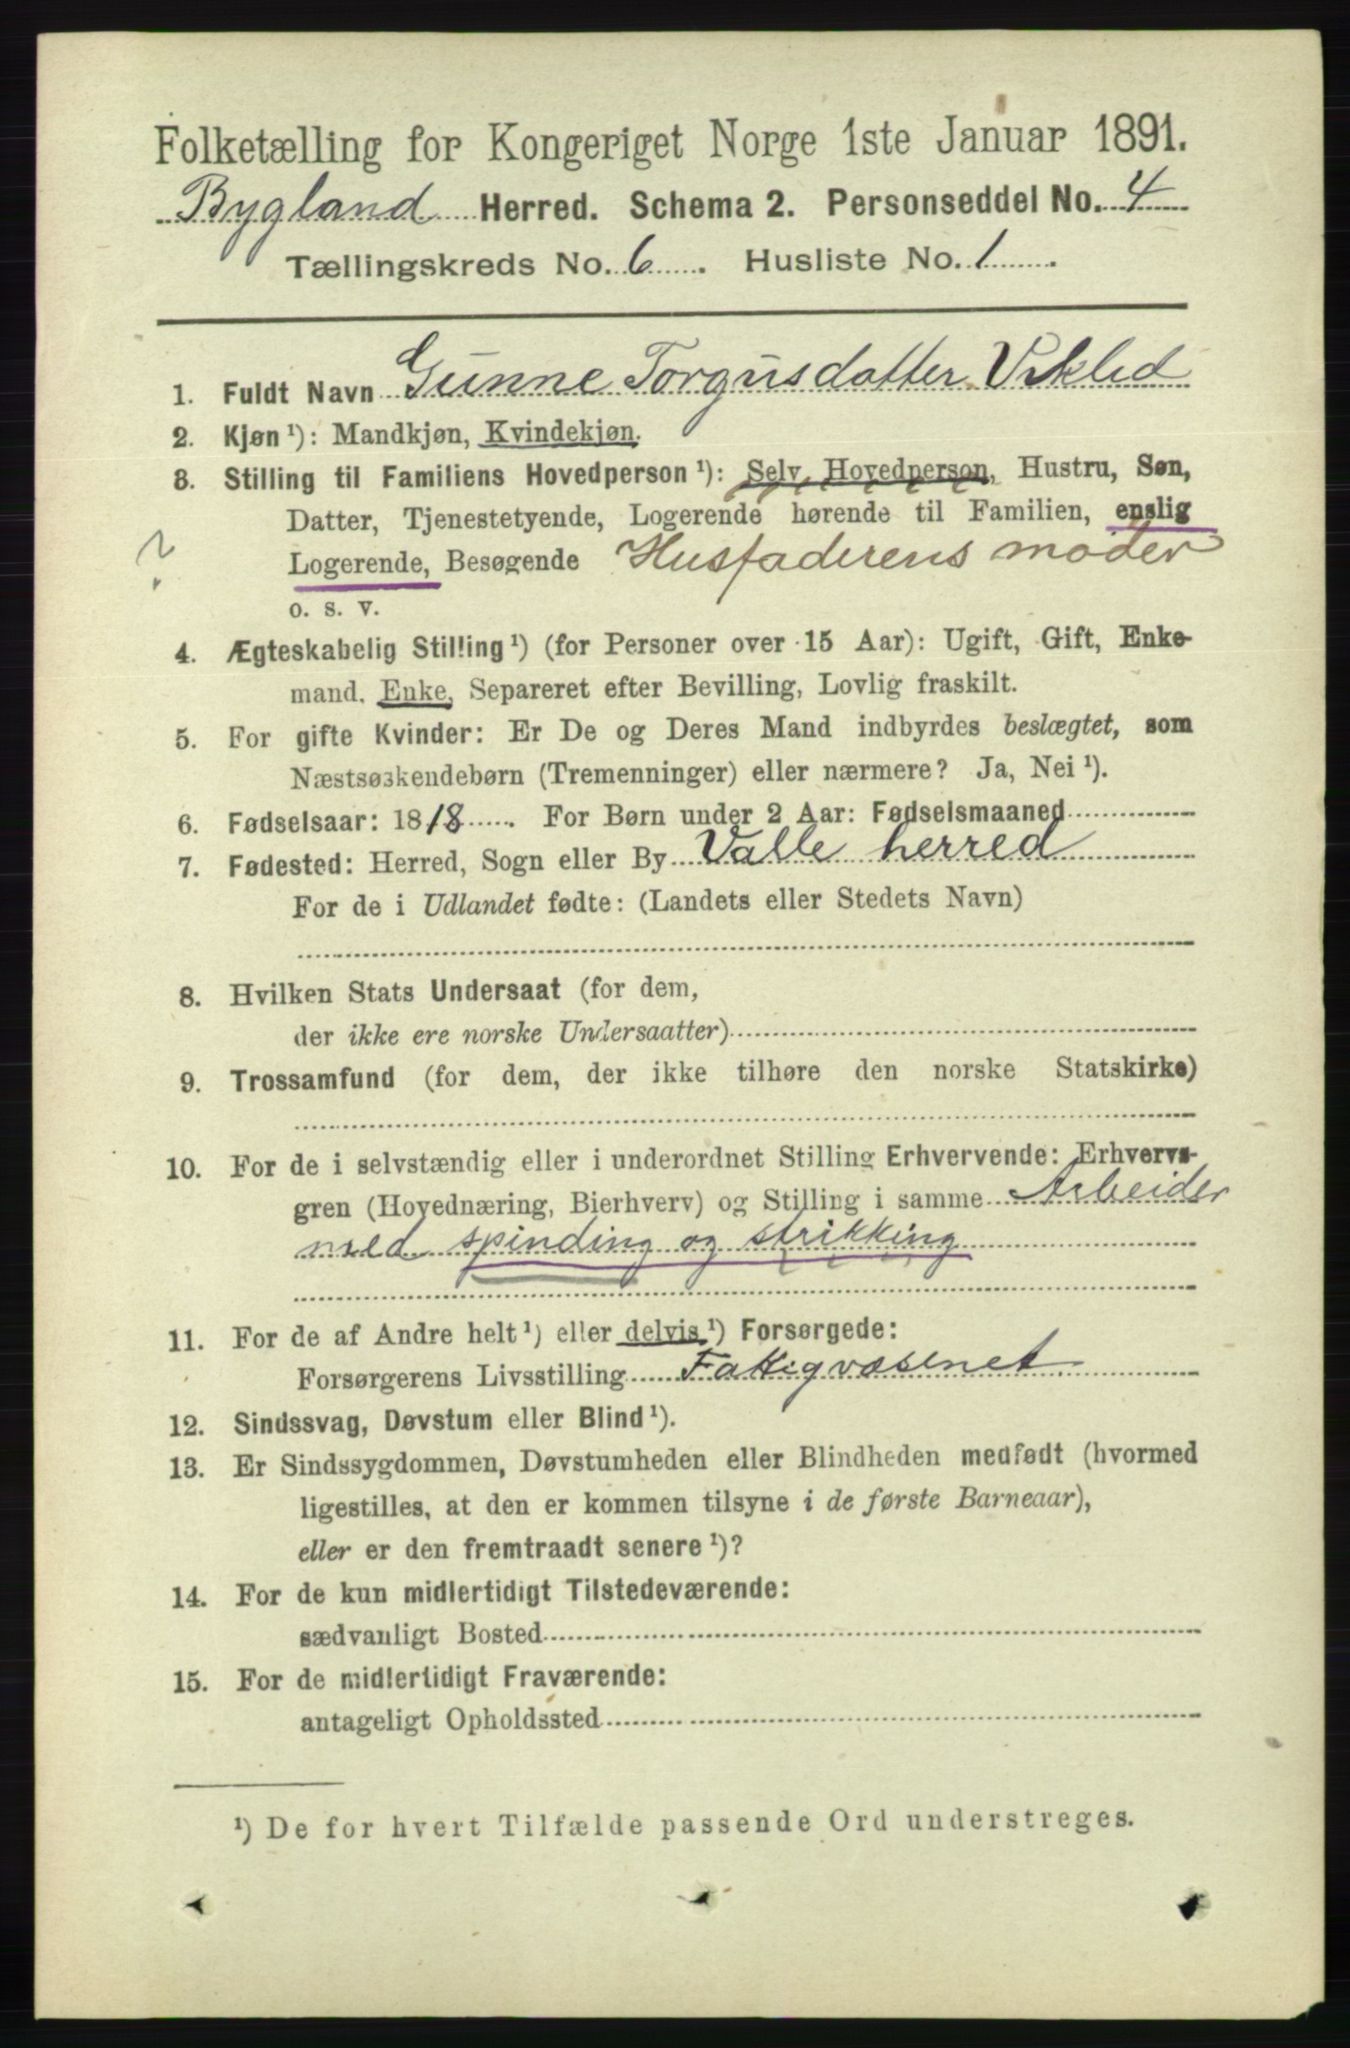 Folketælling for Kongeriget Norge 1ste Januar 1891.
Bygland Herred. Schema 2. Personseddel No. 4
Tællingskreds No. 6 . Husliste No. 1 .
1. Fuldt Navn Gunne Torgusdatter Viklid
2. Kjøn ¹): Mandkjøn, Kvindekjøn.
3. Stilling til Familiens Hovedperson ¹): Selv Hovedperson, Hustru, Søn,
Datter, Tjenestetyende, Logerende hørende til Familien, enslig
? Logerende, Besøgende Husfaderens moder
o. s. v.
4. Ægteskabelig Stilling ¹) (for Personer over 15 Aar): Ugift, Gift, Enke-
mand, Enke, Separeret efter Bevilling, Lovlig fraskilt.
5. For gifte Kvinder: Er De og Deres Mand indbyrdes beslægtet, som
Næstsøskendebørn (Tremenninger) eller nærmere? Ja, Nei ¹).
6. Fødselsaar: 1818 . For Børn under 2 Aar: Fødselsmaaned
7. Fødested: Herred, Sogn eller By Valle herred
For de i Udlandet fødte: (Landets eller Stedets Navn)
8. Hvilken Stats Undersaat (for dem,
der ikke ere norske Undersaatter)
9. Trossamfund (for dem, der ikke tilhøre den norske Statskirke)
10. For de i selvstændig eller i underordnet Stilling Erhvervende: Erhvervs-
gren (Hovednæring, Bierhverv) og Stilling i samme Arbeider
med spinding og strikking
11. For de af Andre helt ¹) eller delvis ¹) Forsørgede:
Forsørgerens Livsstilling Fattigvæsenet
12. Sindssvag, Døvstum eller Blind ¹).
13. Er Sindssygdommen, Døvstumheden eller Blindheden medfødt (hvormed
ligestilles, at den er kommen tilsyne i de første Barneaar),
eller er den fremtraadt senere ¹)?
14. For de kun midlertidigt Tilstedeværende:
sædvanligt Bosted
15. For de midlertidigt Fraværende:
antageligt Opholdssted
¹) De for hvert Tilfælde passende Ord understreges.